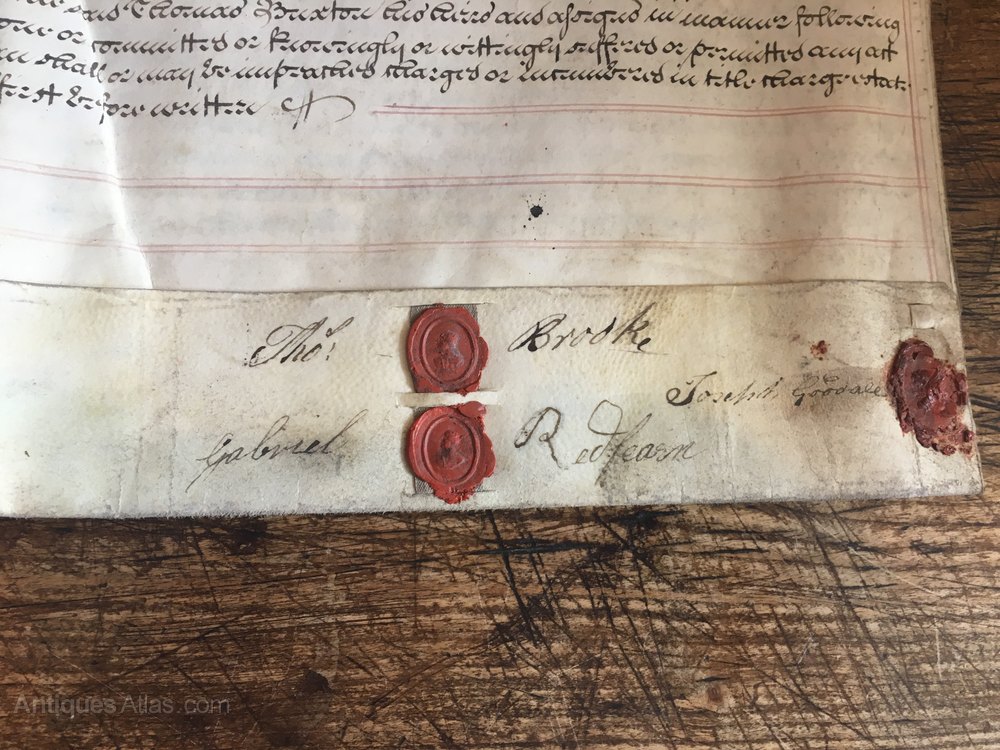 said Thomas Buxton his heirs and assigns in manner following
or committed or knowingly or wittingly suffered or permitted any act
shall or may be impeached charged or incumbered in title charge estate
first before written
Thos: Brooke
Joseph Goodale
Gabriel Redfearn
Antiques Atlas.com